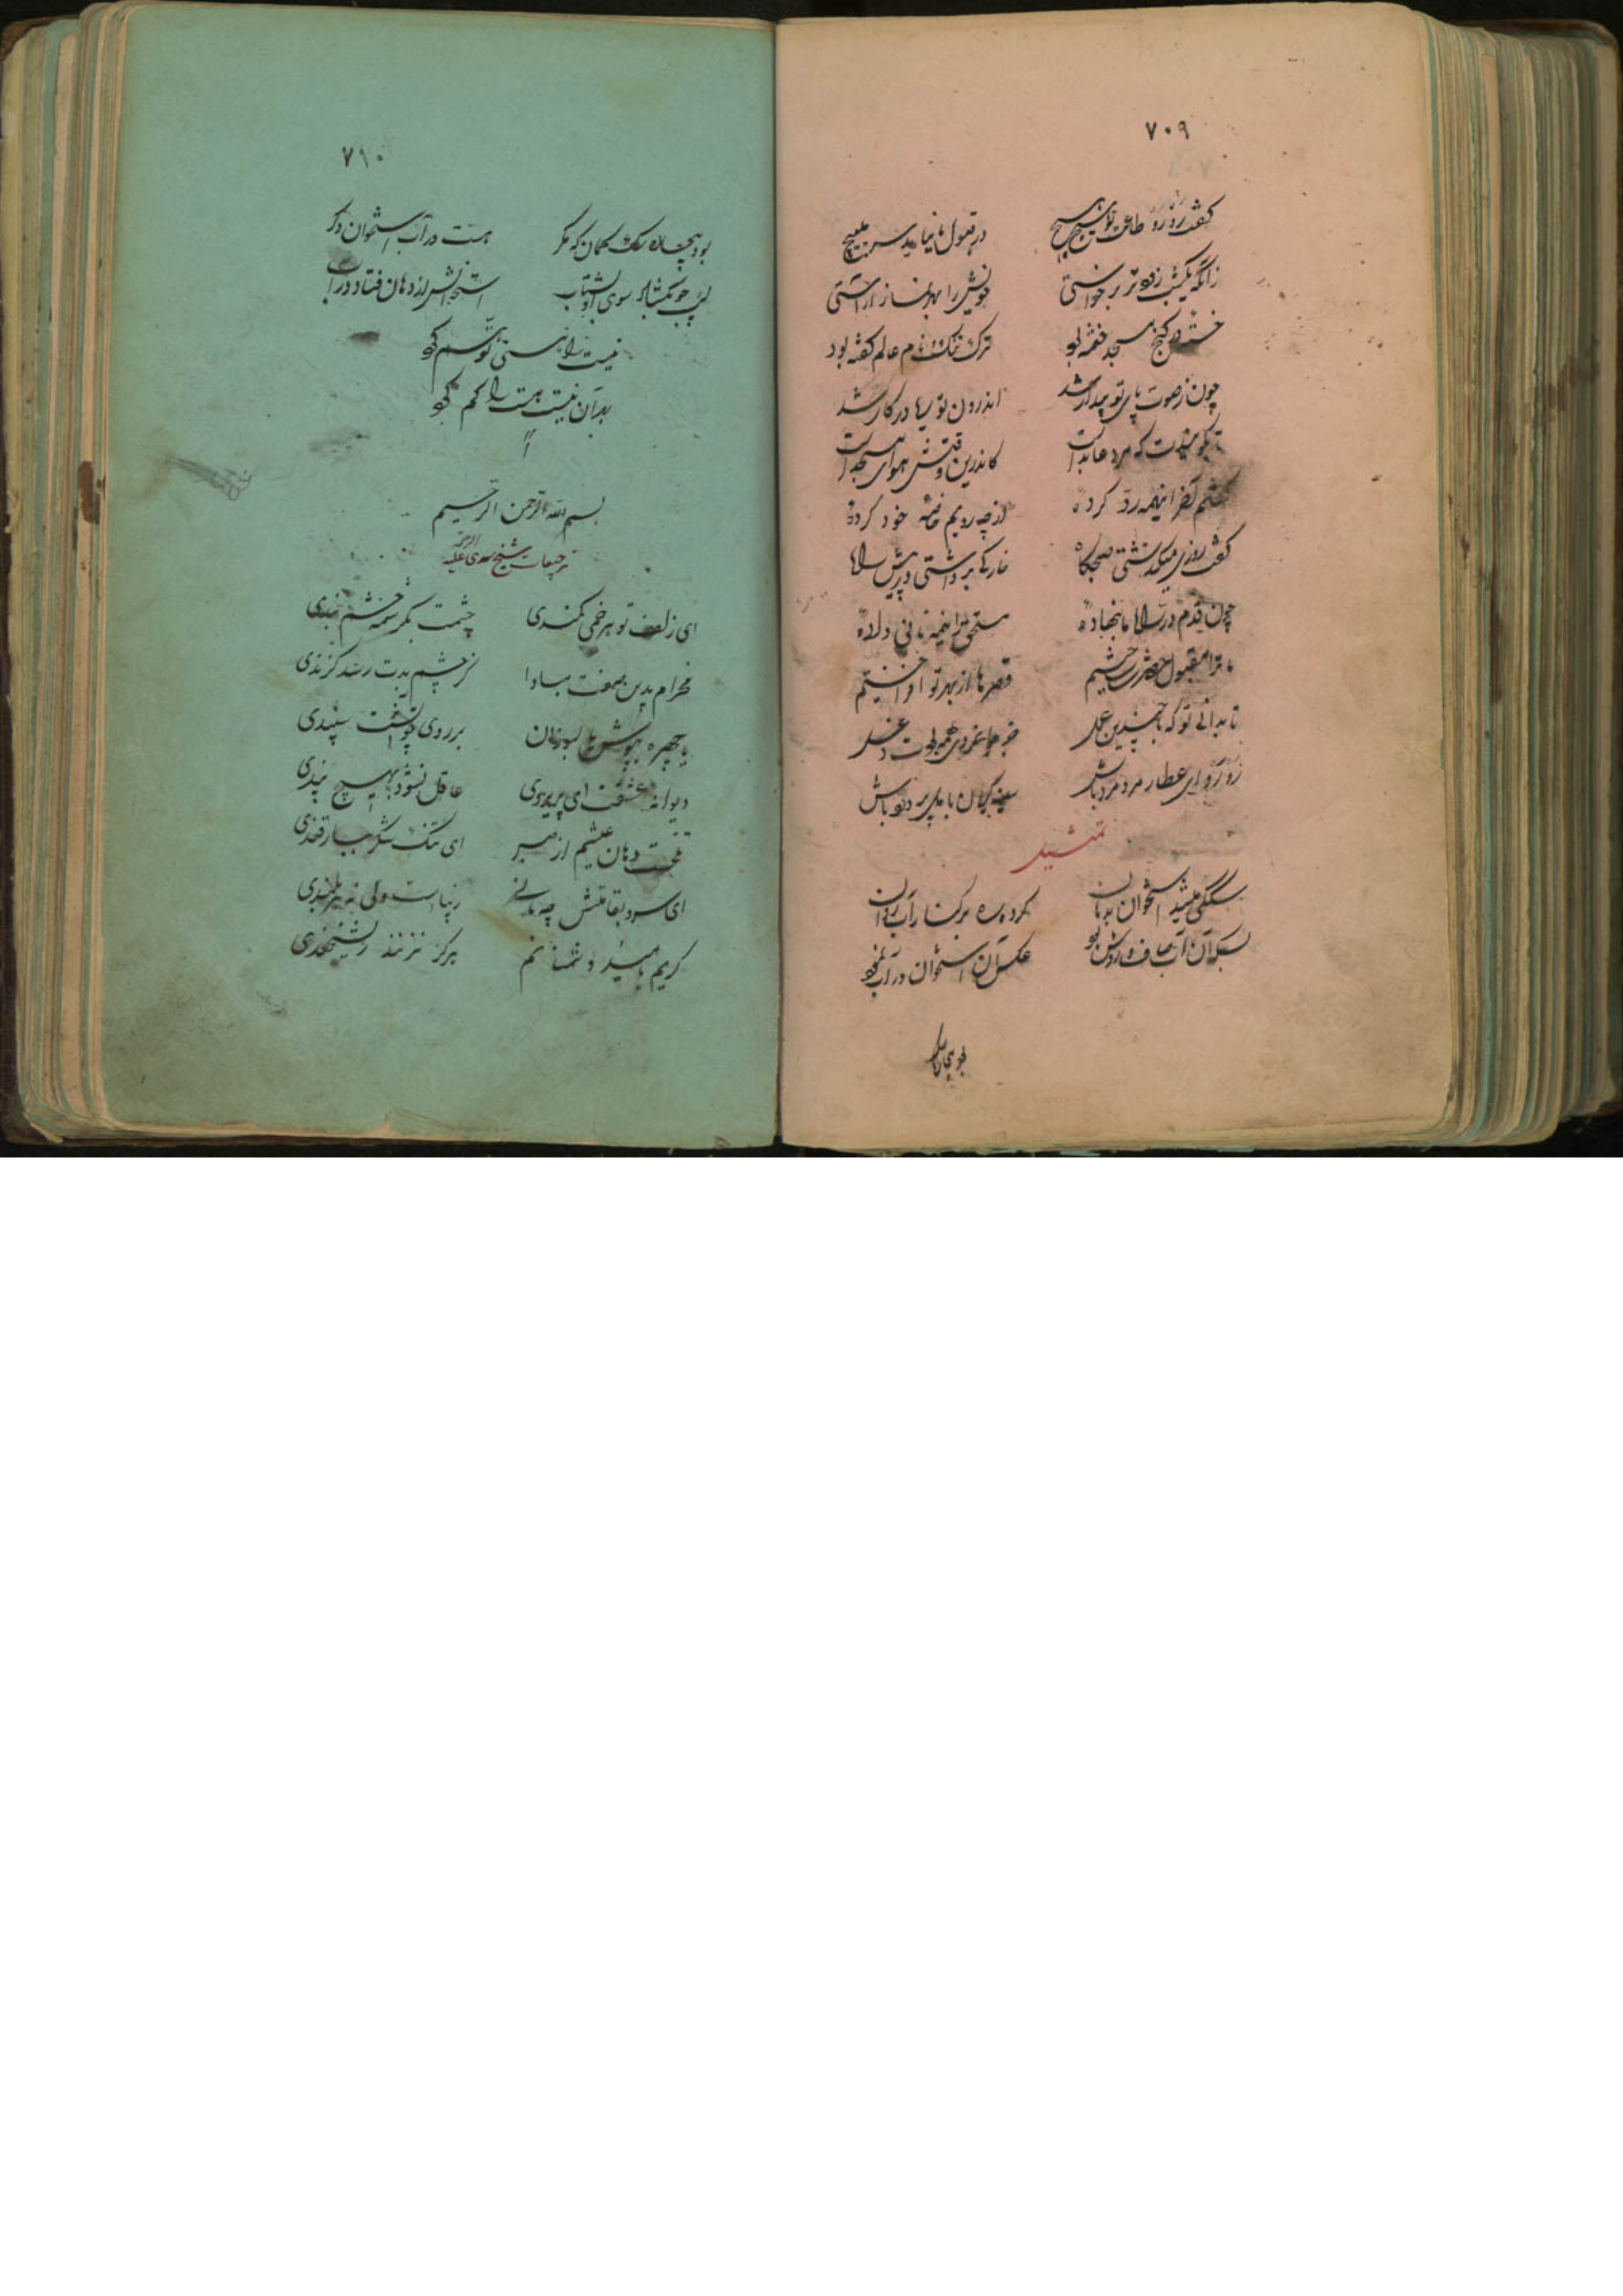 ۷۰۹
گفت رو رو طاعت تو هیچ هیچ در قبول ما نیاید سر مپیچ
زانکه یکشب زودتر برخواستی خویش را بهر نماز آراستی
خسته در کنج مسجد خفته بود ترک ننگ و نام عالم گفته بود
چون ز صوت پای تو بیدار شد اندرون تو ریا در کار شد
تا بگویندت که مرد عابد است کاندرین وقتش هوای مسجد است
گفتم آخر اینهمه رد کرده از چه رویم خاصه خود کرده
گفت روزی میگذشتی صبحگاه خارکی برداشتی در پیش راه
چون قدم در راه ما بنهاده مستحق را نیمه نانی داده
ما ترا مقبول حضرت ساختیم قصرها از بهر تو افراختیم
تا بدانی تو که با چندین عمل جز جوانمردی همه بودت دغل
رو رو ای عطار مرد مرد باش سینه بریان با دل پر درد باش
تمثیل
سگکی میشد استخوان بدهان کرده ره بر کنار آب روان
بسکه آن آب صاف و روشن بود عکس آن استخوان در آب نمود
بود بیچاره
۷۱۰
بود بیچاره سگ گمان که مگر هست در آب استخوان دگر
لب چو بگشاد سوی او بشتاب استخوانش از دهان فتاد در آب
نیست را هستی توهم کرد
بهر آن نیست هست را گم کرد
بسم الله الرحمن الرحیم
ترجیعات شیخ سعدی علیه الرحمه
ای زلف تو هر خمی کمندی چشمت بکرشمه چشم بندی
مخرام بدین صفت مبادا کز چشم بدت رسد گزندی
یا چهره بپوش یا بسوزان بر روی چو آتشت سپندی
دیوانه عشقت ای پریروی عاقل نشود بهیچ پندی
تلخست دهان عیشم از صبر ای تنگ شکر بیار قندی
ای سرو بقامتش چه مانی زیباست ولی نه هر بلندی
گریم بامید و دشمنانم بر گریه زنند ریشخندی